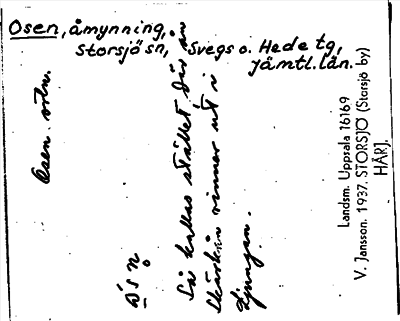 Osen, åmynning,
Storsjö sn, Svegs o. Hede tg,
Jämtl. län.
Osen ortn.
Så kallas stället där en
rinner ut i
Ljungan.
Landsm. Uppsala 16169
V. Jansson. 1937. STORSJÖ (Storsjö by)
HÄRJ.